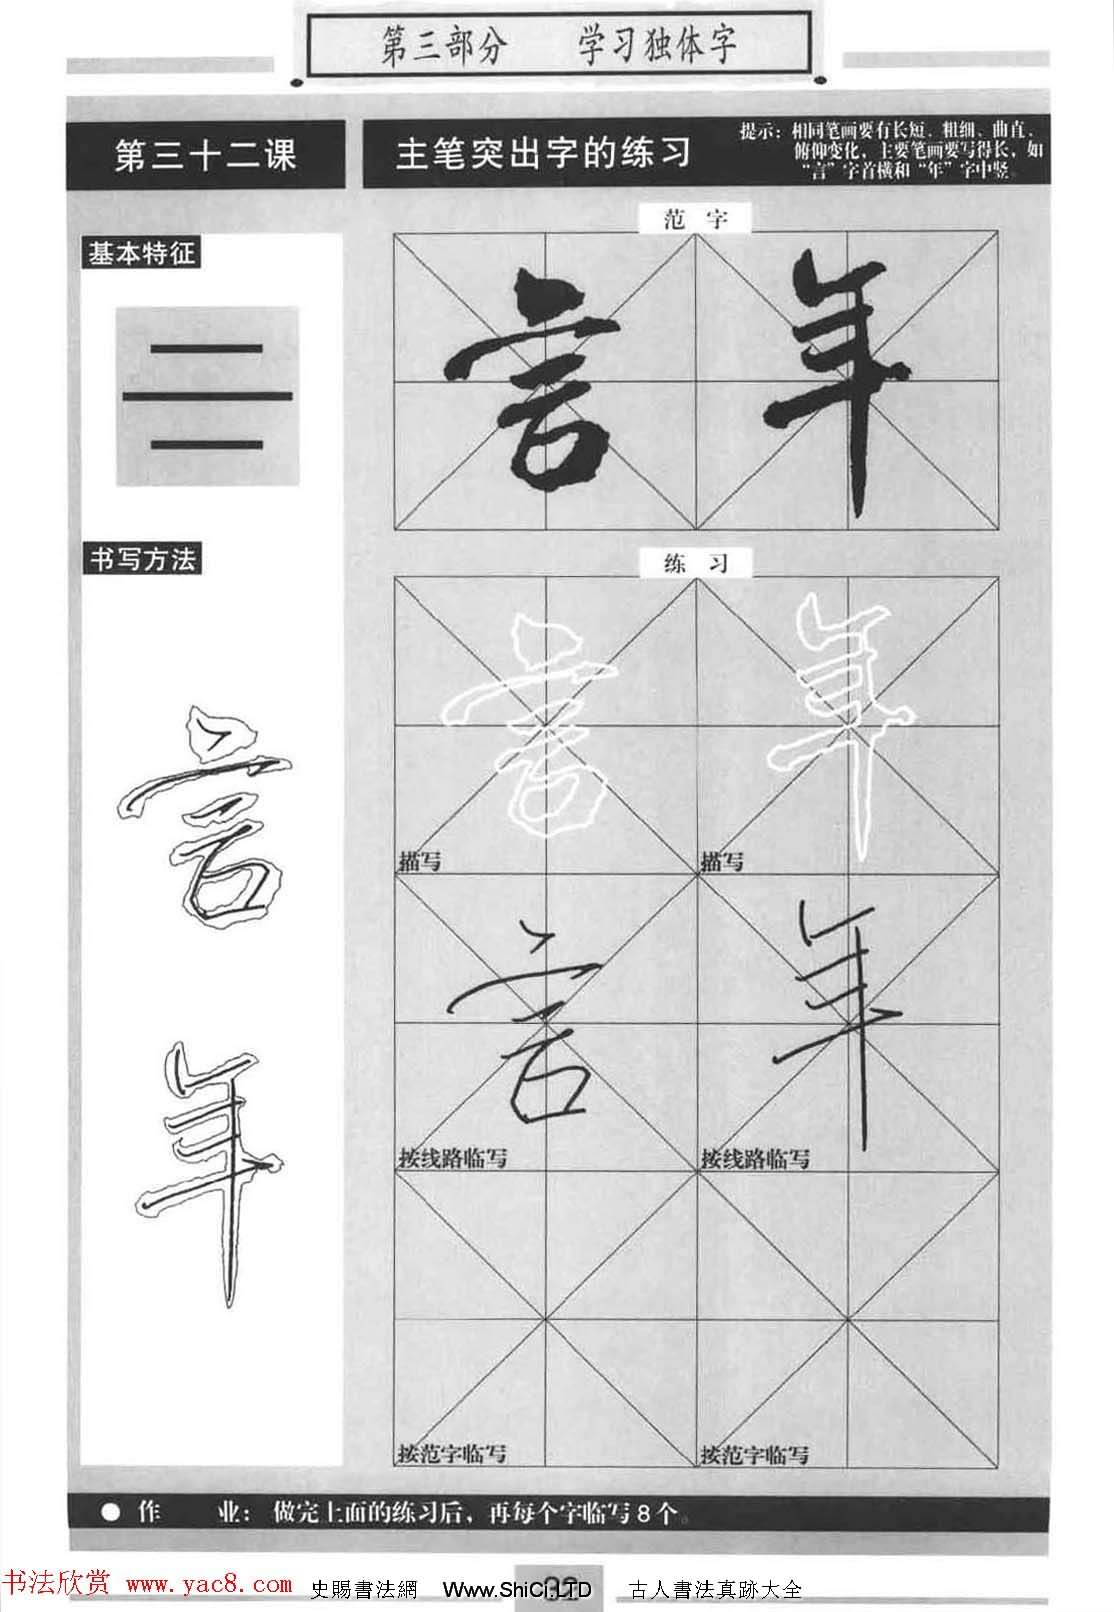 第三部分 学习独体字
第三十二课
主笔突出字的练习
提示：相同笔画要有长短、粗细、曲直、
俯仰变化，主要笔画要写得长，如
“言”字首横和“年”字中竖。
基本特征
书写方法
言
年
范 字
言 年
练 习
言 年
描写 描写
言 年
按线路临写 按线路临写
按范字临写 按范字临写
● 作 业：做完上面的练习后，再每个字临写8个。
32
书法欣赏 www.yac8.com 史賜書法網 Www.ShiCi.LTD 古人書法真跡大全